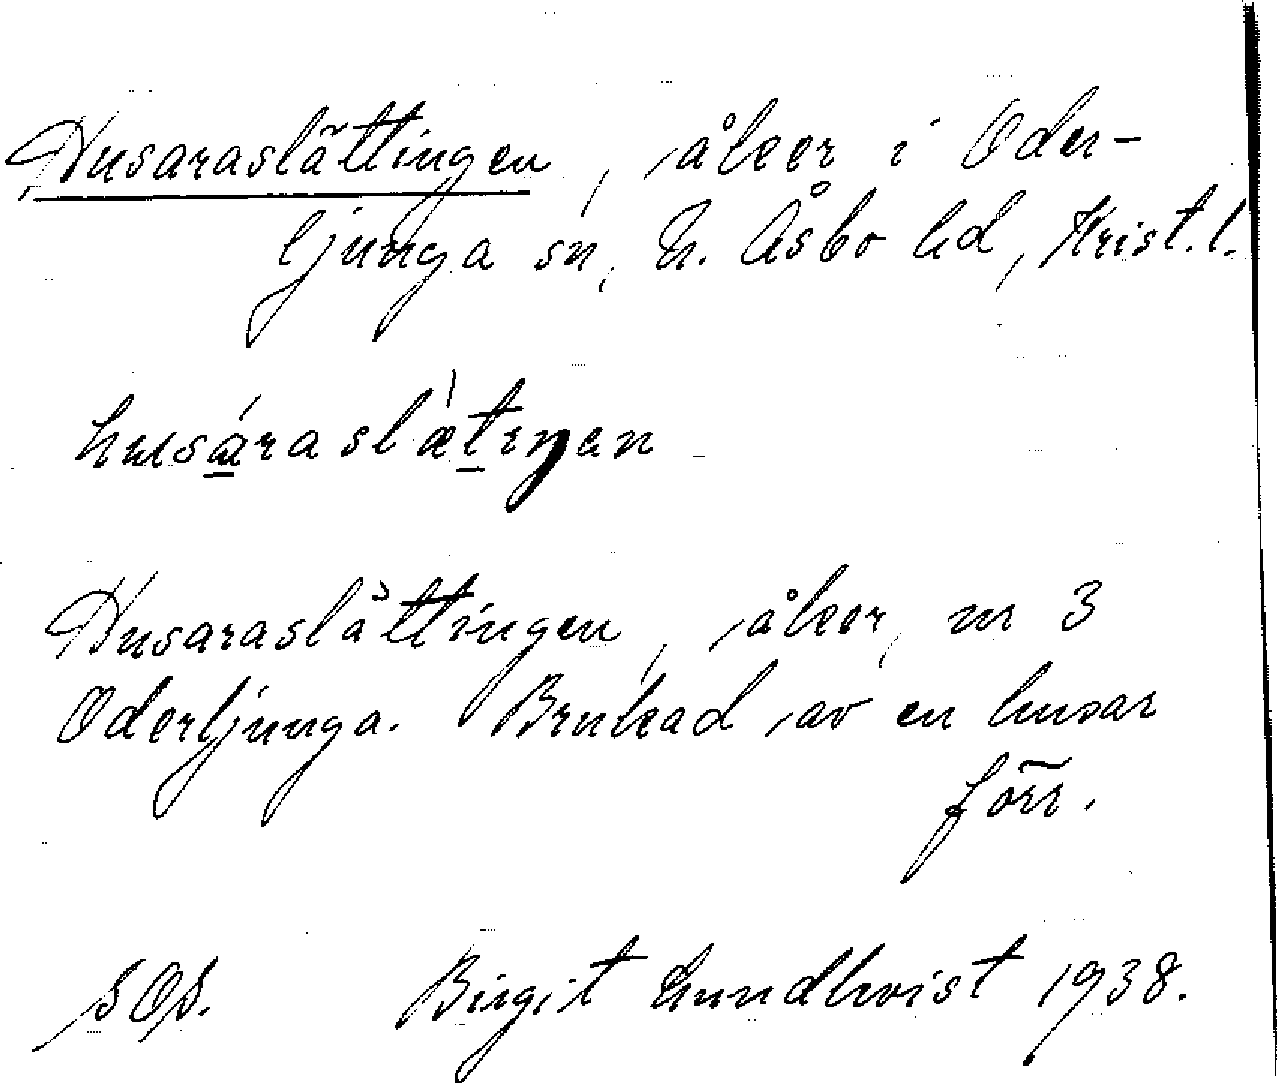 Husaraslättingen, åker i Oder-
ljunga sn, N. Åsbo hd, Krist. l.
husáraslæ̀tıŋen
Husaraslättingen, åker, nr 3
Oderljunga. Brukad av en husar
förr.
SOS. Birgit Lundkvist 1938.